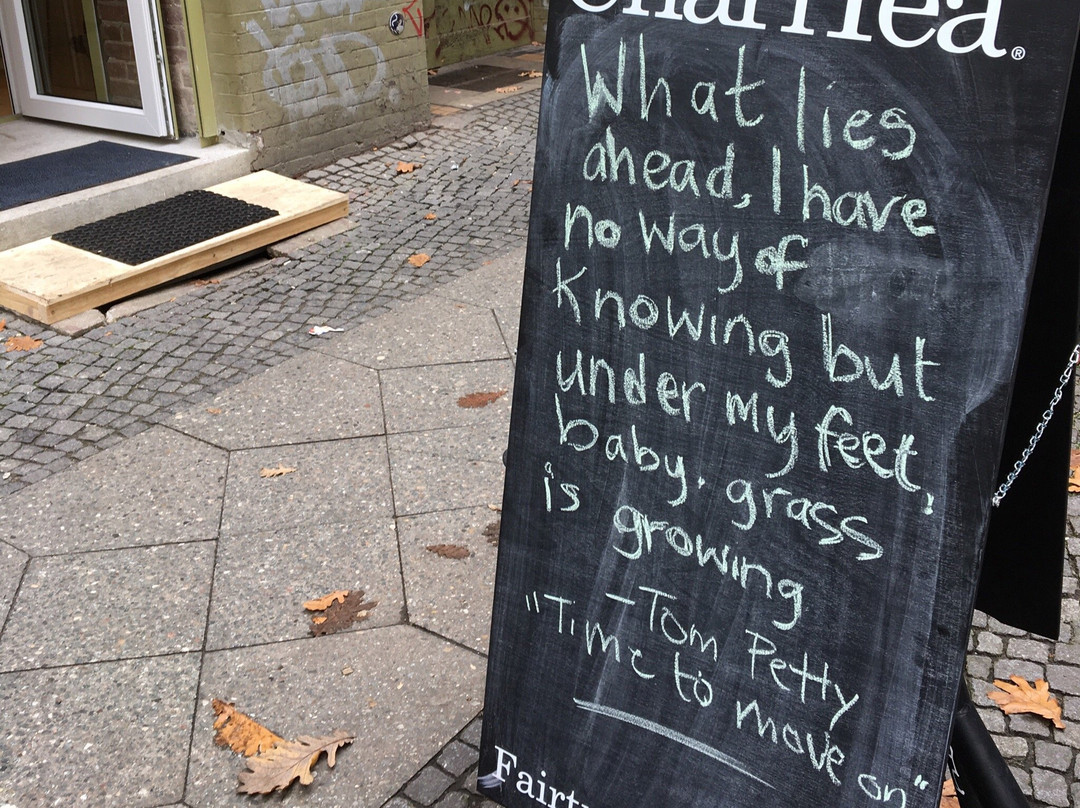 What lies
ahead, I have
no way of
knowing but
under my feet,
baby, grass
is growing
—Tom Petty
"Time to move on"